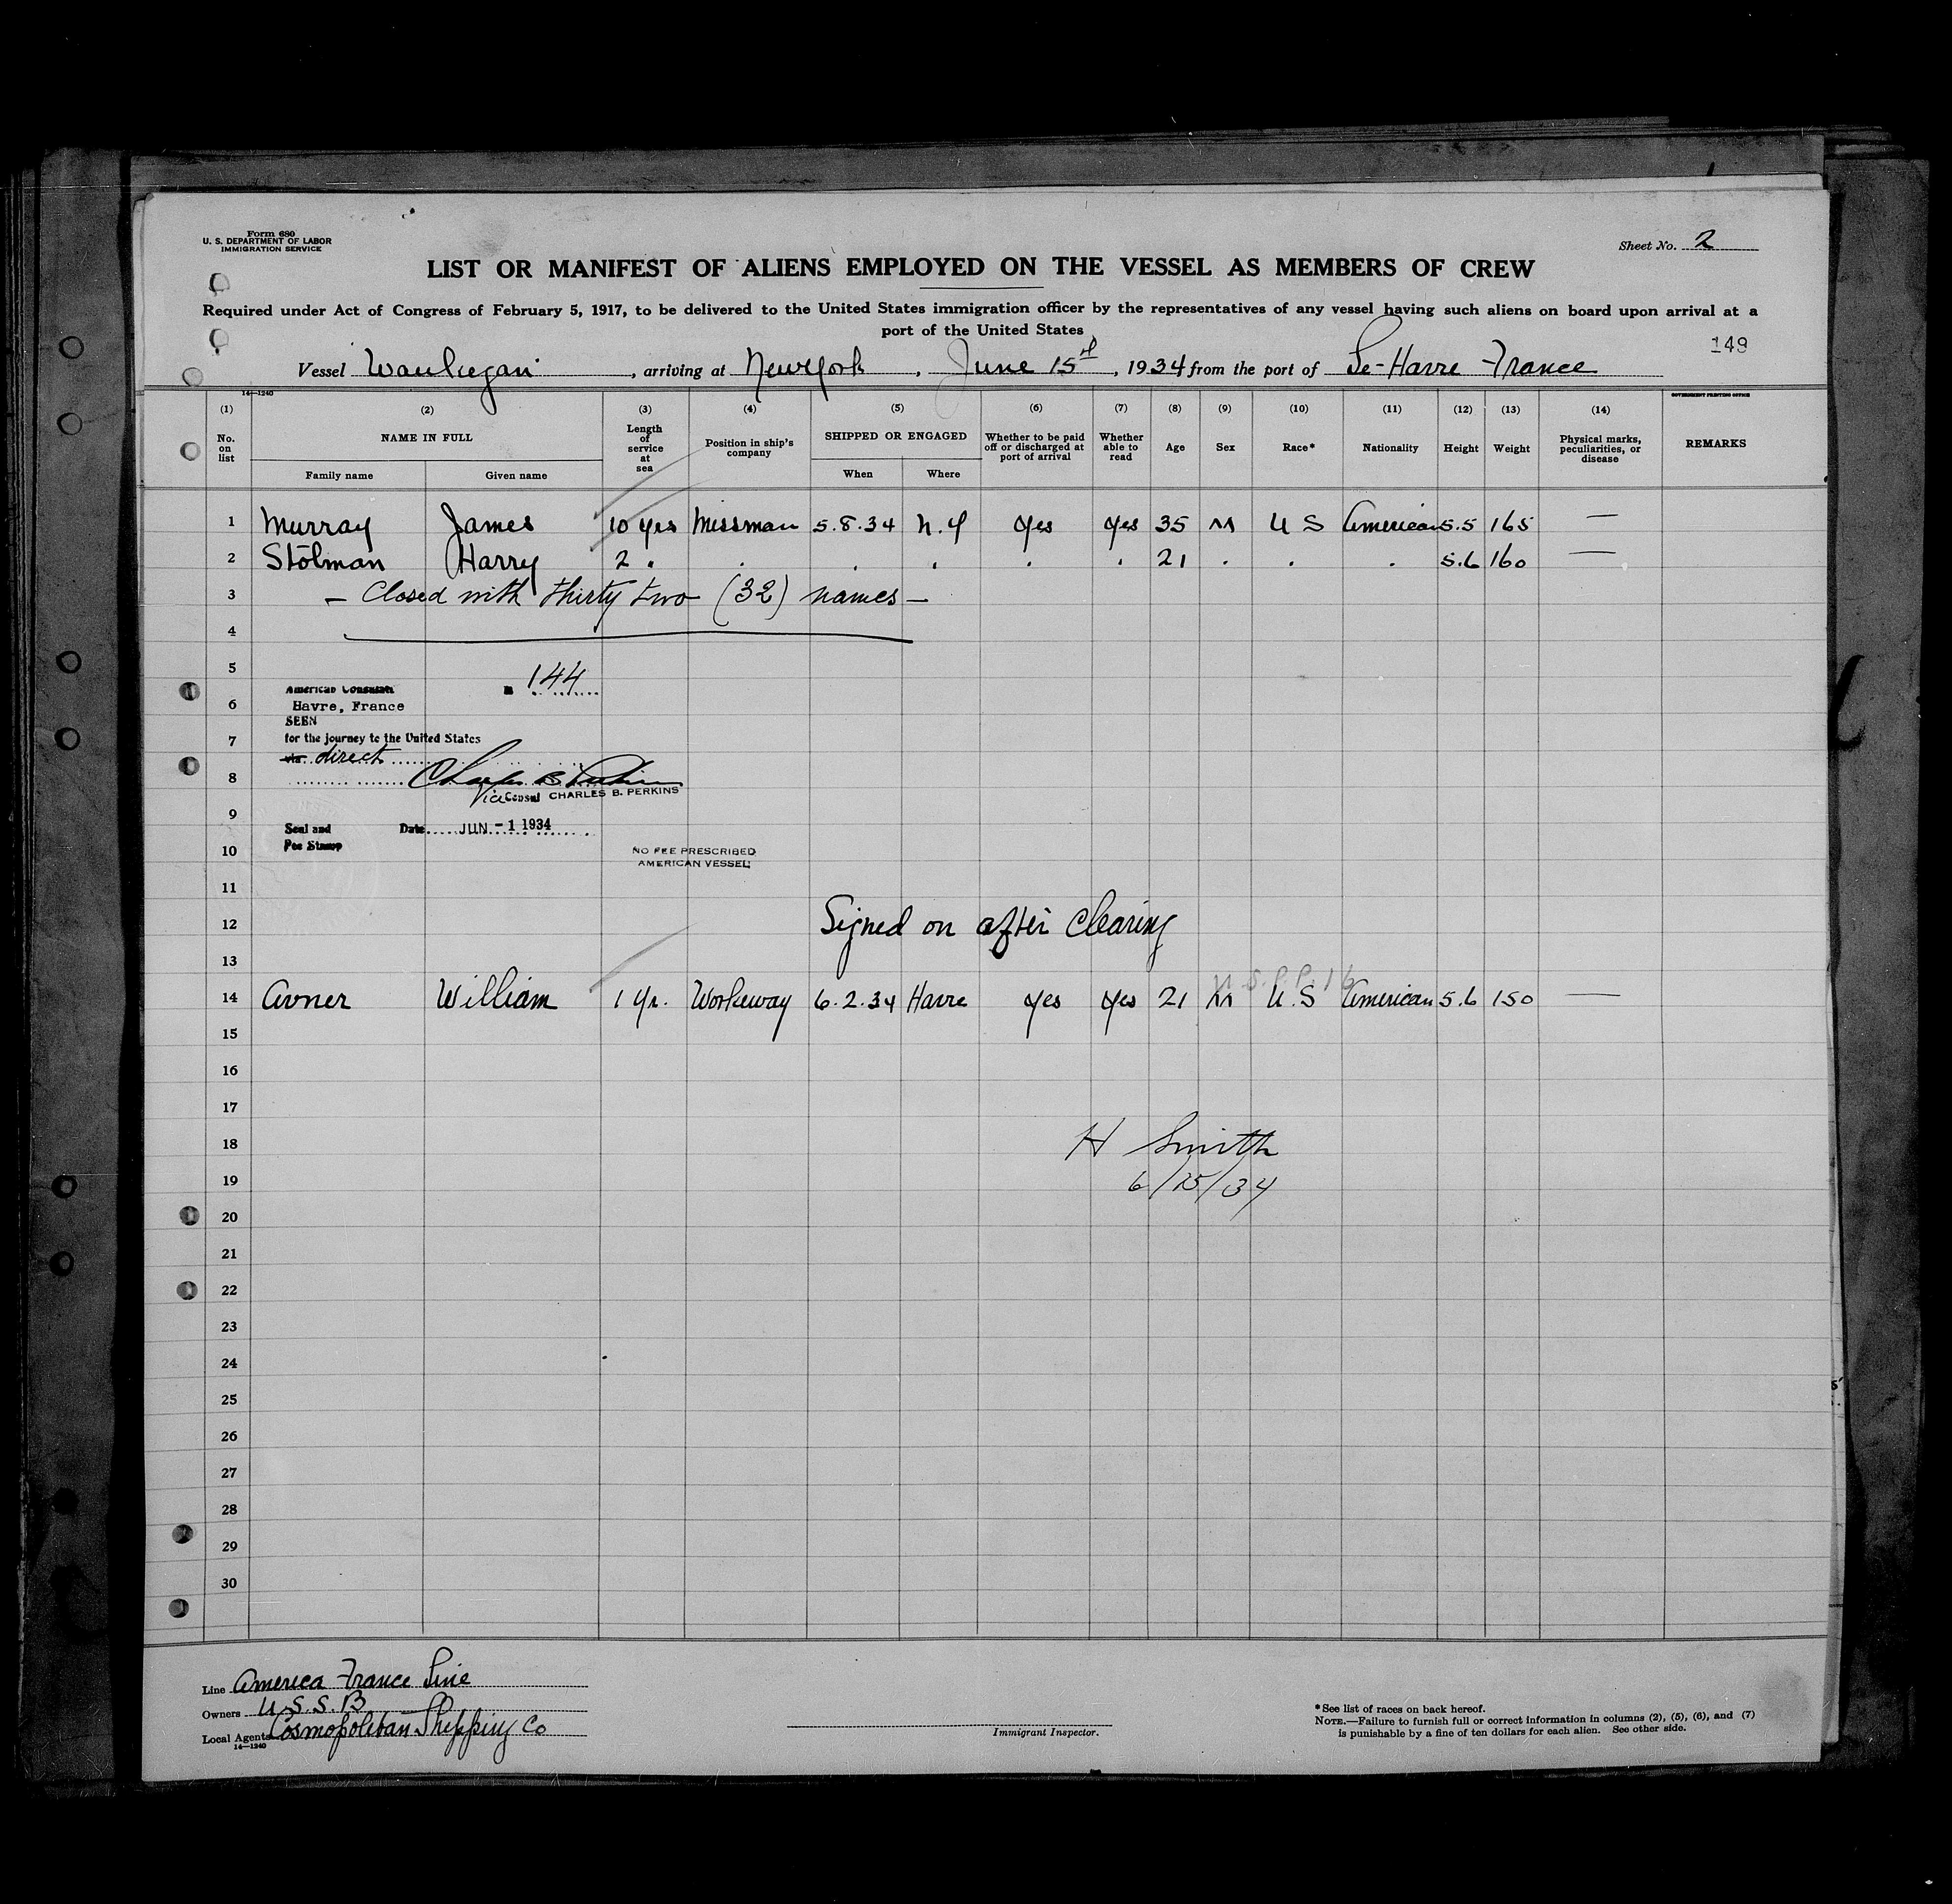 Form 680
U. S. DEPARTMENT OF LABOR
IMMIGRATION SERVICE
Sheet No. 2
LIST OR MANIFEST OF ALIENS EMPLOYED ON THE VESSEL AS MEMBERS OF CREW
Required under Act of Congress of February 5, 1917, to be delivered to the United States immigration officer by the representatives of any vessel having such aliens on board upon arrival at a
port of the United States
149
Vessel Waukegan, arriving at New York, June 15th, 1934 from the port of Le-Havre France
14—1240
GOVERNMENT PRINTING OFFICE
(1) (2) (3) (4) (5) (6) (7) (8) (9) (10) (11) (12) (13) (14)
No. on list NAME IN FULL Family name Given name Length of service at sea Position in ship's company SHIPPED OR ENGAGED When Where Whether to be paid off or discharged at port of arrival Whether able to read Age Sex Race* Nationality Height Weight Physical marks, peculiarities, or disease REMARKS
1 Murray James 10 yrs Messman 5.8.34 N.Y Yes Yes 35 M U S American 5.5 165 —
2 Stolman Harry 2 " . . . . . 21 . . . 5.6 160 —
3 — Closed with thirty two (32) names —
4
5 144
American Consulate
6 Havre, France
SEEN
7 for the journey to the United States
via direct
8 Charles B Perkins
Vice Consul CHARLES B. PERKINS
9
Seal and Date JUN - 1 1934
10 Fee Stamp NO FEE PRESCRIBED
AMERICAN VESSEL
11
12 Signed on after clearing
13
U.S.P.P. 16
14 Avner William 1 Yr. Workaway 6.2.34 Havre Yes Yes 21 M U.S American 5.6 150 —
15
16
17
18 H Smith
19 6/15/34
20
21
22
23
24
25
26
27
28
29
30
Line America France Line
Owners U.S.S.B
Local Agents Cosmopolitan Shipping Co
14—1240
Immigrant Inspector.
*See list of races on back hereof.
NOTE.—Failure to furnish full or correct information in columns (2), (5), (6), and (7)
is punishable by a fine of ten dollars for each alien. See other side.